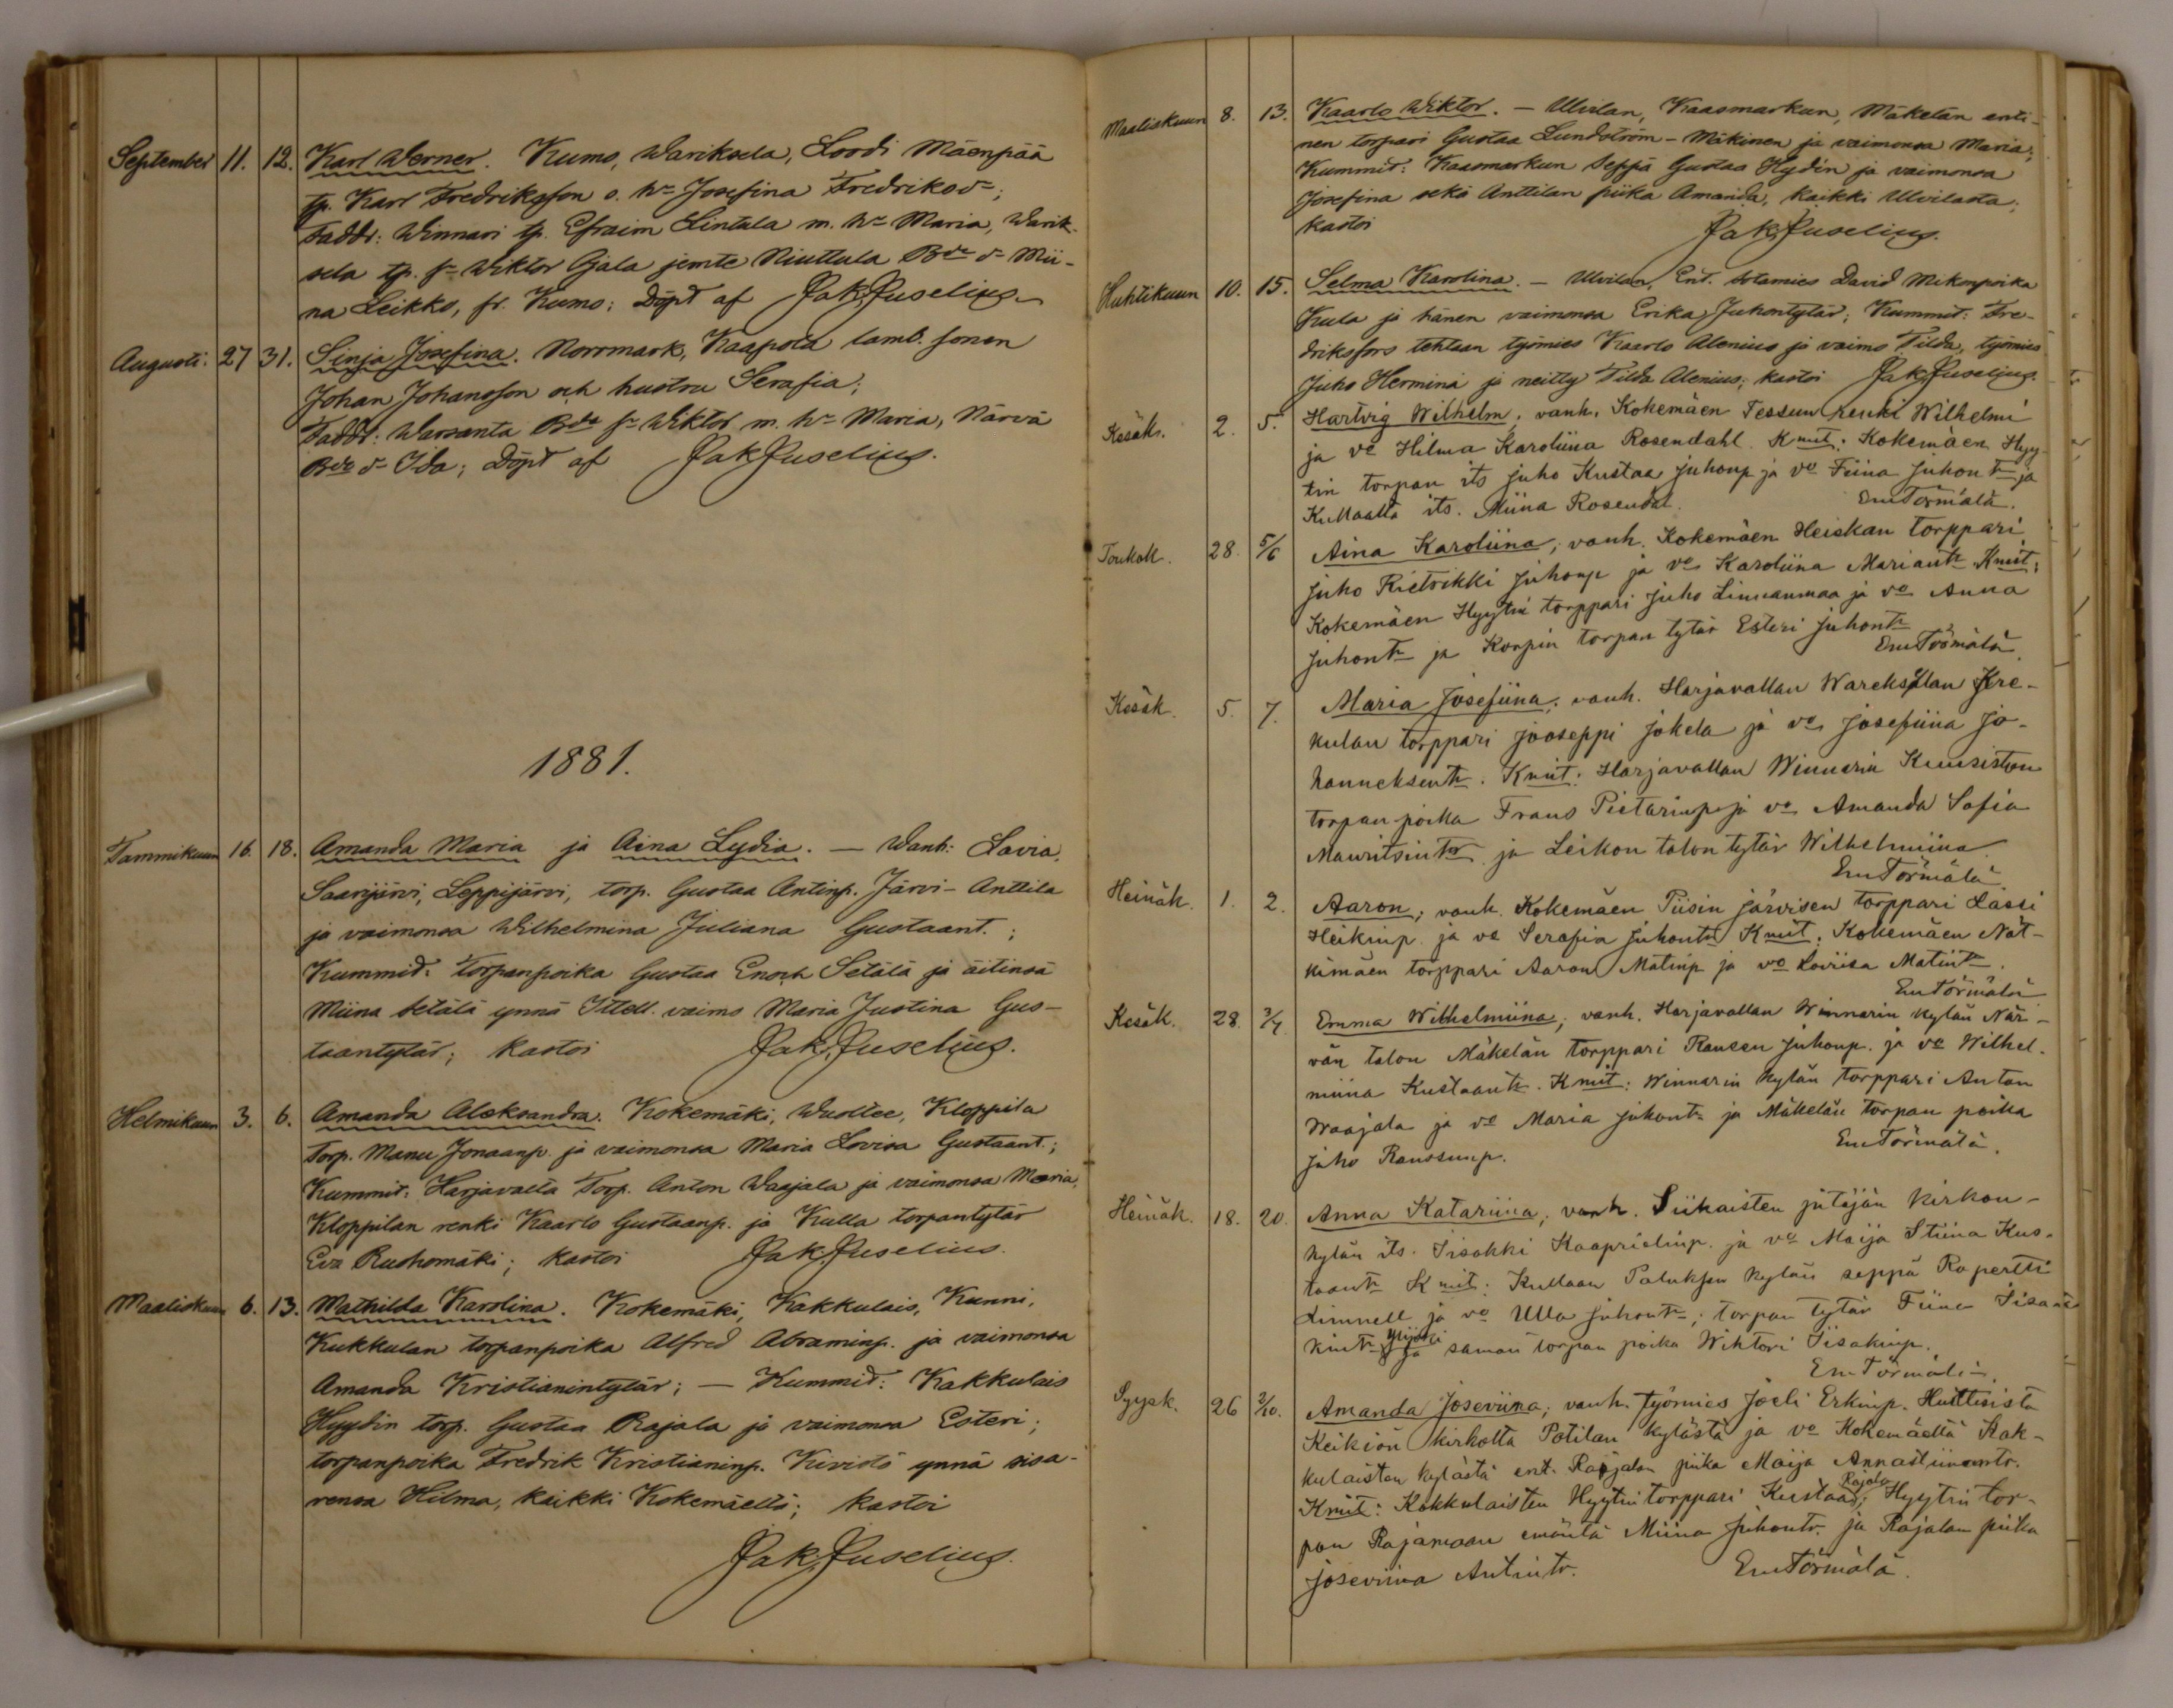 September 11. 12. Karl Werner. Kumo, Wariksela, Loodi Mäenpää
tp. Karl Fredriksson o. hu Josefina Fredriksdr;
Faddr: Winnari tp. Efraim Lintula m. hu Maria, Warik-
sela tp. sn Wiktor Ojala jemte Niuttula Bde dr Mii-
na Leikko, fr. Kumo; Döpt af Jak. Juselius.
Augusti. 27 31. Sinja Josefina. Norrmark, Kaapola lamb. sonen
Johan Johansson och hustru Serafia;
Faddr: Warsanta Bde sn Wiktor m. hu Maria, Närvä
Bde dr Ida; Döpt af Jak Juselius.
1881.
Tammikuun 16. 18. Amanda Maria ja Aina Lydia. — Wanh: Lavia,
Saarijärvi, Leppijärvi, torp. Gustaa Antinp. Järvi-Anttila
ja vaimonsa Wilhelmina Juliana Gustaant.;
Kummit: Torpanpoika Gustaa Enoch Setälä ja äitinsä
Miina Setälä ynnä Ittell. vaimo Maria Justina Gus-
taantytär; kastoi Jak. Juselius.
Helmikuun 3. 6. Amanda Aleksandra. Kokemäki, Wuoltee, Kloppila
Torp. Manu Jonaanp. ja vaimonsa Maria Lovisa Gustaant.;
Kummit: Harjavalta Torp. Anton Waajala ja vaimonsa Maria,
Kloppilan renki Kaarlo Gustaanp. ja Kulla torpantytär
Eva Ruohomäki; kastoi Jak. Juselius.
Maaliskuun 6. 13. Mathilda Karolina. Kokemäki, Kakkulais, Kunni,
Kukkulan torpanpoika Alfred Abraminp. ja vaimonsa
Amanda Kristianintytär; — Kummit: Kakkulais
Hyydin torp. Gustaa Rajala ja vaimonsa Esteri;
torpanpoika Fredrik Kristianinp. Kivistö ynnä sisa-
rensa Hilma, kaikki Kokemäeltä; kastoi
Jak. Juselius.
Maaliskuun 8. 13. Kaarlo Wiktor. — Ulvilan, Kaasmarkun, Mäkelän enti-
nen torpari Gustaa Lundström-Mäkinen ja vaimonsa Maria;
Kummit: Kaasmarkun Seppä Gustaa Hydin ja vaimonsa
Josefina sekä Anttilan piika Amanda, kaikki Ulvilasta;
kastoi Jak. Juselius.
Huhtikuun 10. 15. Selma Karolina. — Ulvilan, Ent. sotamies David Mikonpoika
Kula ja hänen vaimonsa Erika Juhontytär; Kummit: Fre-
driksfors tehtaan työmies Kaarlo Alenius ja vaimo Tilda, työmies
Juho Hermina ja neitty Tilda Alenius; kastoi Jak Juselius.
Kesäk. 2. 5. Hartvig Wilhelm, vanh. Kokemäen Tessun renki Wilhelmi
ja vo Hilma Karoliina Rosendahl. Kmit: Kokemäen Hyy-
tin torpan its Juho Kustaa Juhonp ja vo Fiina Juhontr ja
Kullaalta its. Miina Rosendal. Em Törmälä.
Toukok. 28. 5/6 Aina Karoliina; vanh. Kokemäen Heiskan torppari
Juho Rietrikki Juhonp ja vo Karoliina Mariantr Kmit:
Kokemäen Hyytin torppari Juho Linnanmaa ja vo Anna
Juhontr ja Korpin torpan tytär Esteri Juhontr
Em Törmälä.
Kesäk. 5. 7. Maria Josefiina, vanh. Harjavallan Wareksелan Kre-
kulan torppari Jooseppi Jokela ja vo Josefiina Jo-
hanneksentr. Kmit: Harjavallan Winnarin Kuusiston
torpan poika Frans Pietarinp ja vo Amanda Sofia
Mauritsintr ja Leikon talon tytär Wilhelmiina
Em Törmälä.
Heinäk. 1. 2. Aaron; vanh. Kokemäen Piisin järvisen torppari Lassi
Heikinp. ja vo Serafia Juhontr Kmit: Kokemäen Nät-
kimäen torppari Aaron Matinp ja vo Loviisa Matintr.
Em Törmälä
Kesäk. 28. 3/7. Emma Wilhelmiina; vanh. Harjavallan Winnarin kylän När-
vän talon Mäkelän torppari Ranssu Juhonp. ja vo Wilhel-
miina Kustaantr. Kmit: Winnarin kylän torppari Anton
Waajala ja vo Maria Juhontr ja Mäkelän torpan poika
Juho Ranssunp. Em Törmälä.
Heinäk. 18. 20. Anna Katariina; vanh. Siikaisten pitäjän kirkon-
kylän its. Iisakki Kaaprielinp. ja vo Maija Stiina Kus-
taantr Kmit: Kullaan Paluksen kylän seppä Ropertti
Linnell ja vo Ulla Juhontr; torpan tytär Fiina Iisa-
kintr ja saman torpan poika Wihtori Iisakinp.
Em Törmälä.
Syysk. 26 2/10. Amanda Joseviina; vanh. Työmies Joeli Erkinp. Huittisista
Keikiön kirkolta Potilan kylästä ja vo Kokemäeltä Kak-
kulaisten kylästä ent. Rajalan piika Maija Annastiinantr.
Kmit: Kakkulaisten Hyytin torppari Kustaa Rajala; Hyytin tor-
pan Rajamaan emäntä Miina Juhontr. ja Rajalan piika
Joseviina Antintr. Em Törmälä.